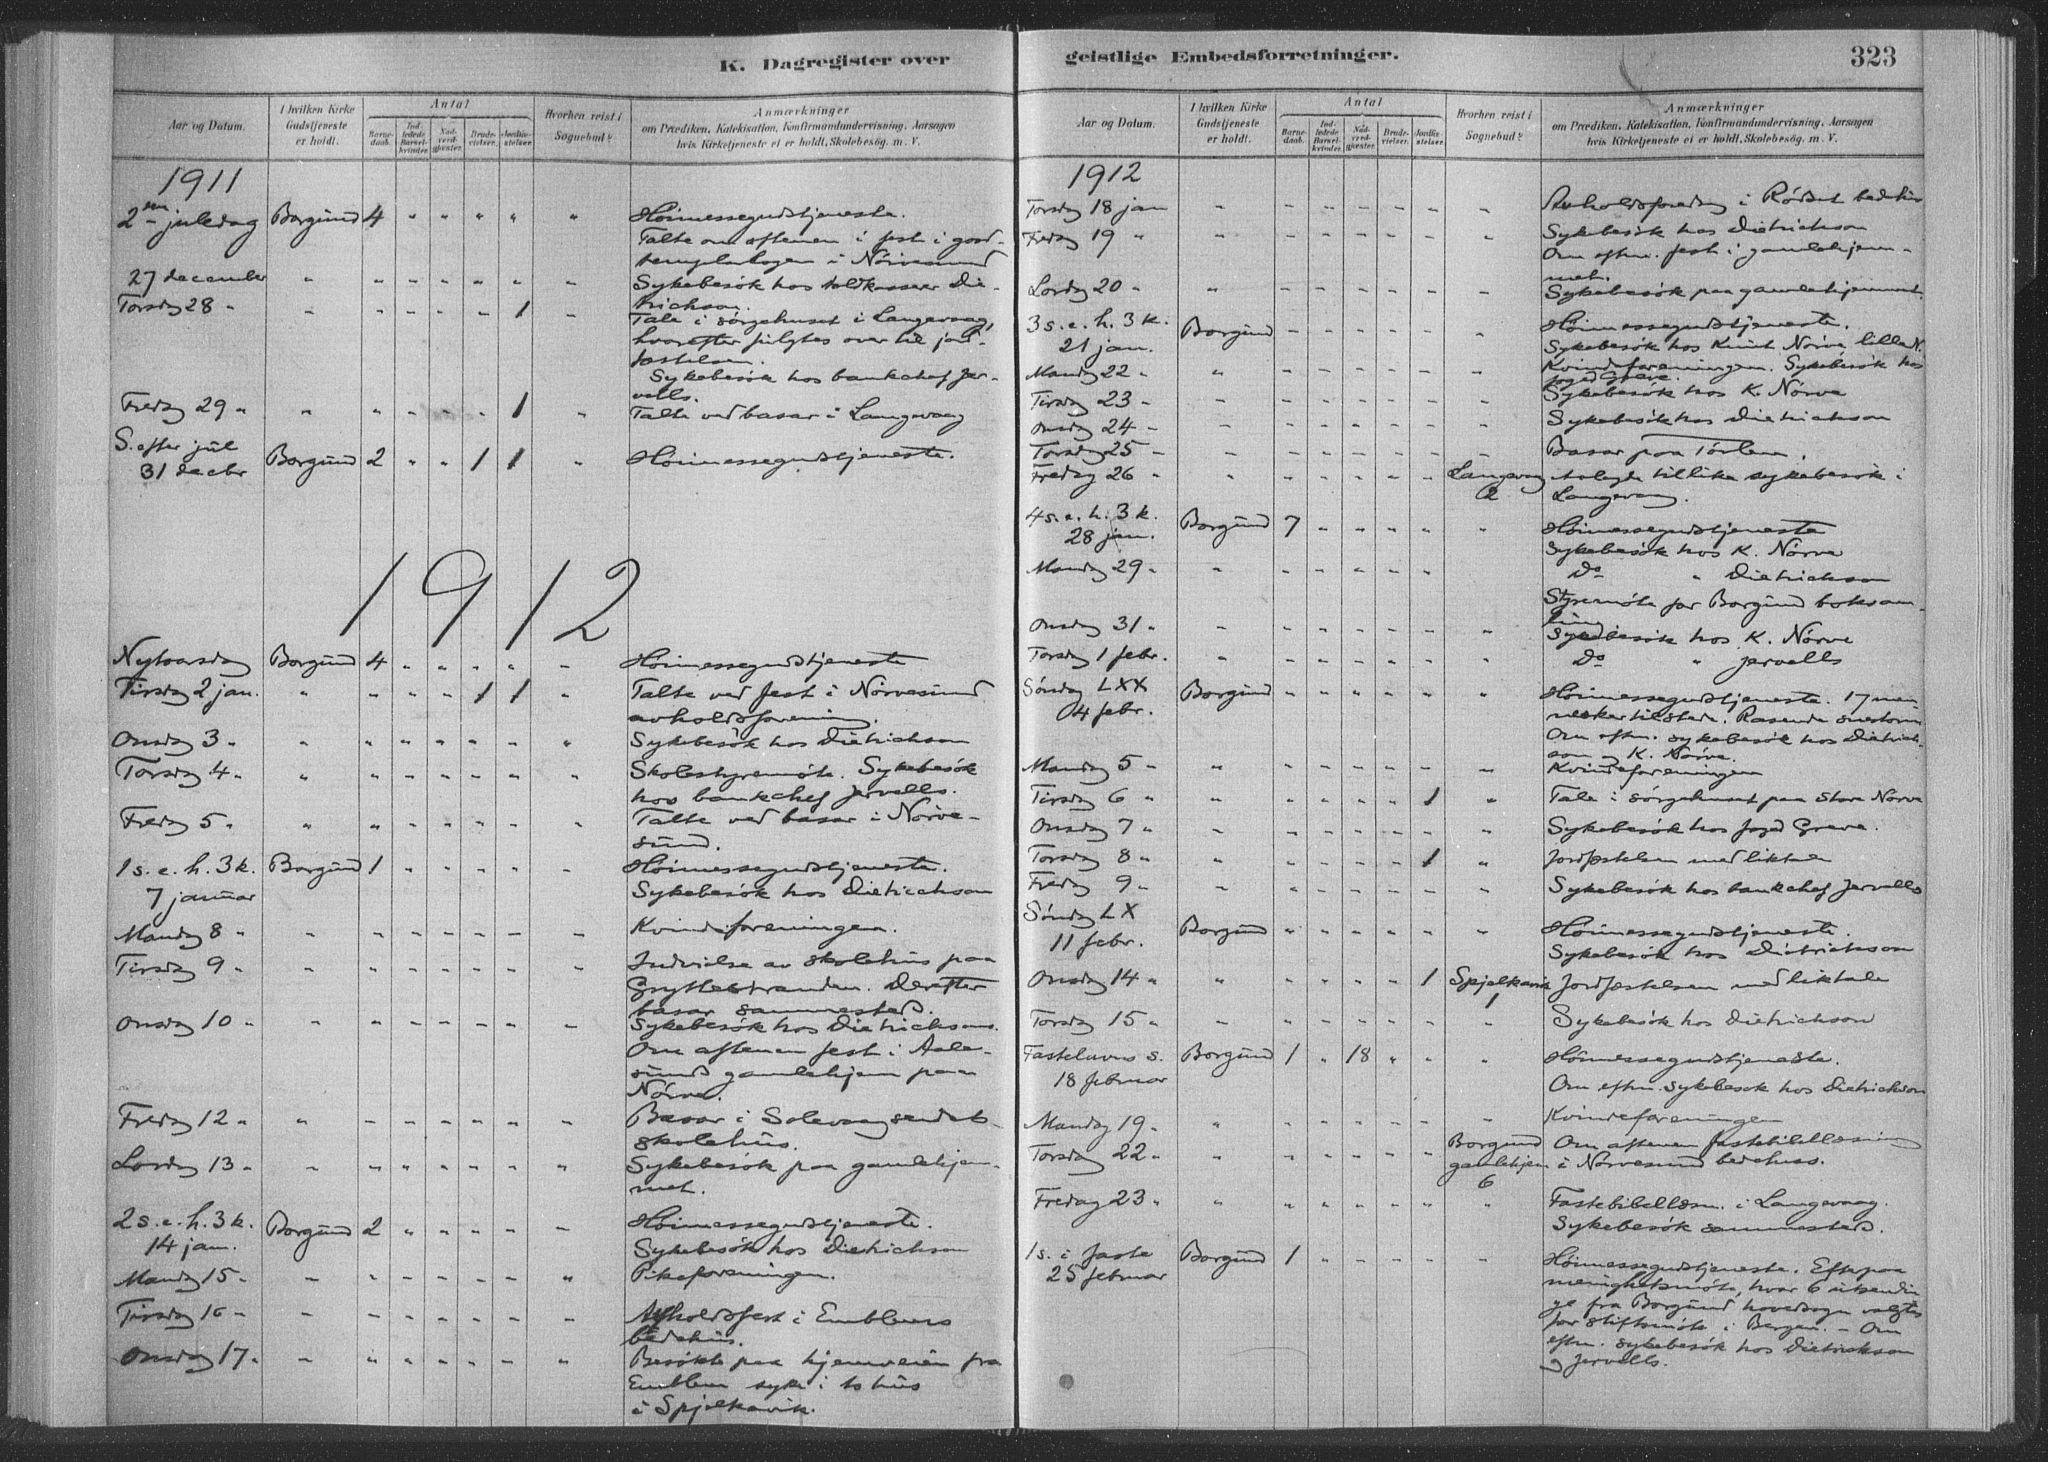 K. Dagregister over
Aar og Datum.
I hvilken Kirke Gudstjeneste er holdt.
Antal
Barne-daab.
Ind-ledede Barsel-kvinder.
Nad-verd-gjæster.
Brude-vielser.
Jordfæ-stelser.
Hvorhen reist i Sognebud?
Anmærkninger
om Prædiken, Katekisation, Konfirmandundervisning, Aarsagen
hvis Kirketjeneste ei er holdt, Skolebesøg. m. V.
1911
2den juledag Borgund 4 " " " " " Høimessegudstjeneste.
Talte om aftenen i fest i good-
templarlogen i Nørvesund
27 december " " " " " " " Sykebesök hos toldkasserer Die-
trichson.
Torsdag 28 " " " " " " 1 " Tale i sørgehuset i Langevaag,
hvorefter fulgtes over til jord-
fæstelsen.
Sykebesök hos bankchef Jer-
vells.
Fredag 29 " " " " " " 1 " Talte ved basar i Langevaag
S. efter jul
31 decbr Borgund 2 " " 1 1 " Høimessegudstjeneste.
1912
Nytaarsdag Borgund 4 " " " " " Høimessegudstjeneste
Tirsdag 2 jan. " " " " 1 1 " Talte ved fest i Nørvesund
avholdsforening.
Onsdag 3 " " " " " " " " Sykebesök hos Dietrichson
Torsdag 4 " " " " " " " " Skolestyremöte. Sykebesök
hos bankchef Jervells.
Fredag 5 " " " " " " " " Talte ved basar i Nørve-
sund.
1 s. e. h. 3 k. Borgund 1 " " " " " Høimessegudstjeneste.
7 januar Sykebesök hos Dietrichson
Mandag 8 " " " " " " " " Kvindeforeningen.
Tirsdag 9 " " " " " " " " Indvielse av skolehus paa
Gryttestranden. Derefter
basar sammesteds.
Onsdag 10 " " " " " " " " Sykebesök hos Dietrichsons.
Om aftenen fest i Aale-
sunds gamlehjem paa
Nørve.
Fredag 12 " " " " " " " " Basar i Solevaagseidets
skolehus.
Lørdag 13 " " " " " " " " Sykebesök paa gamlehjem-
met.
2 s. e. h. 3 k. Borgund 2 " " " " " Høimessegudstjeneste.
14 jan. Sykebesök hos Dietrichson
Mandag 15 " " " " " " " " Pikeforeningen.
Tirsdag 16 " " " " " " " " Avholdsfest i Emblems
bedehus.
Onsdag 17 " " " " " " " " Besökte paa hjemveien fra
Emblem syke i to hus
i Spjelkavik.
geistlige Embedsforretninger.
323
Aar og Datum.
I hvilken Kirke Gudstjeneste er holdt.
Antal
Barne-daab.
Ind-ledede Barsel-kvinder.
Nad-verd-gjæster.
Brude-vielser.
Jordfæ-stelser.
Hvorhen reist i Sognebud?
Anmærkninger
om Prædiken, Katekisation, Konfirmandundervisning, Aarsagen
hvis Kirketjeneste ei er holdt, Skolebesøg. m. V.
1912
Torsdag 18 jan " " " " " " " Avholdsforedrag i Rødset bedehus
Fredag 19 " " " " " " " " Sykebesök hos Dietrichson
Om eftm. fest i gamlehjem-
met.
Lørdag 20 " " " " " " " " Sykebesök paa gamlehjemmet.
3 s. e. h. 3 k. Borgund " " " " " " Høimessegudstjeneste.
21 jan. Sykebesök hos Knut Nørve, lille N.
Mandag 22 " " " " " " " " Kvindeforeningen. Sykebesök hos
foged Greve.
Tirsdag 23 " " " " " " " " Sykebesök hos K. Nørve
Onsdag 24 " " " " " " " " Sykebesök hos Dietrichson
Torsdag 25 " " " " " " " " Basar paa Tørlen.
Fredag 26 " " " " " " " Langevaag Avlagde tillike sykebesök i
2 Langevaag.
4 s. e. h. 3 k. Borgund 7 " " " " " Høimessegudstjeneste
28 jan. Sykebesök hos K. Nørve
Mandag 29 " " " " " " " " Do " Dietrichson
Styremöte for Borgund boksam-
ling
Onsdag 31 " " " " " " " " Sykebesök hos K. Nørve
Torsdag 1 febr. " " " " " " " Do " Jervells
Søndag LXX Borgund " " " " " " Høimessegudstjeneste. 17 men-
4 febr. nesker tilstede. Rasende snestorm
Om eftm. sykebesök hos Dietrich-
son og K. Nørve.
Mandag 5 " " " " " " " " Kvindeforeningen
Tirsdag 6 " " " " " " 1 " Tale i sörgehuset paa Store Nørve
Onsdag 7 " " " " " " " " Sykebesök hos foged Greve.
Torsdag 8 " " " " " " 1 " Jordfæstelsen med liktale
Fredag 9 " " " " " " " " Sykebesök hos bankchef Jervells
Søndag LX
11 febr. Borgund " " " " " " Høimessegudstjeneste.
Sykebesök hos Dietrichson
Onsdag 14 " " " " " " 1 Spjelkavik Jordfæstelsen med liktale
1
Torsdag 15 " " " " " " " " Sykebesök hos Dietrichson
Fastelavns s. Borgund 1 " 18 " " " Høimessegudstjeneste.
18 februar Om eftm. sykebesok hos Dietrichson
Mandag 19 " " " " " " " " Kvindeforeningen
Torsdag 22 " " " " " " " Borgund Om aftenen fastebibellæsning
gamlehjem i Nørvesund bedehuss.
6
Fredag 23 " " " " " " " " Fastebibellæsn. i Langevaag.
Sykebesök sammesteds.
1 s. i faste Borgund 1 " " " " " Høimessegudstjeneste. Efterpaa
25 februar menighetsmöte, hvor 6 utsendin-
ge fra Borgund hovedsogn valgtes
for stiftsmöte i Bergen. - Om
eftm. sykebesök hos Dietrichson
og Jervells.